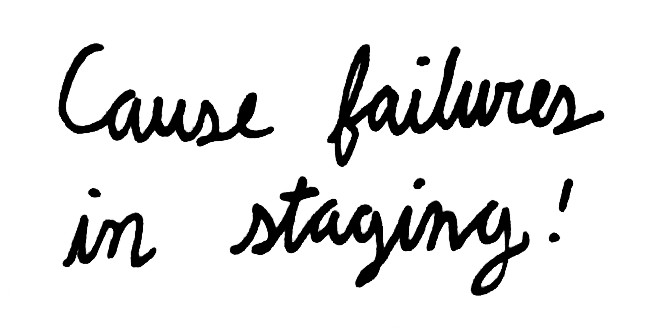 Cause failures
in staging!